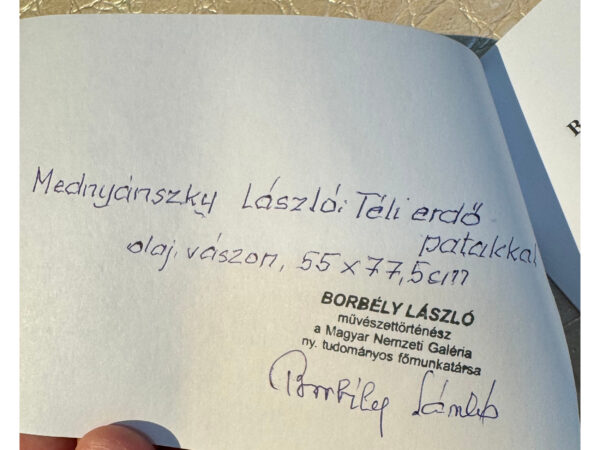 Mednyánszky László: Téli erdő
patakkal
olaj, vászon, 55 x 77,5 cm
BORBÉLY LÁSZLÓ
művészettörténész
a Magyar Nemzeti Galéria
ny. tudományos főmunkatársa
Borbély László
B